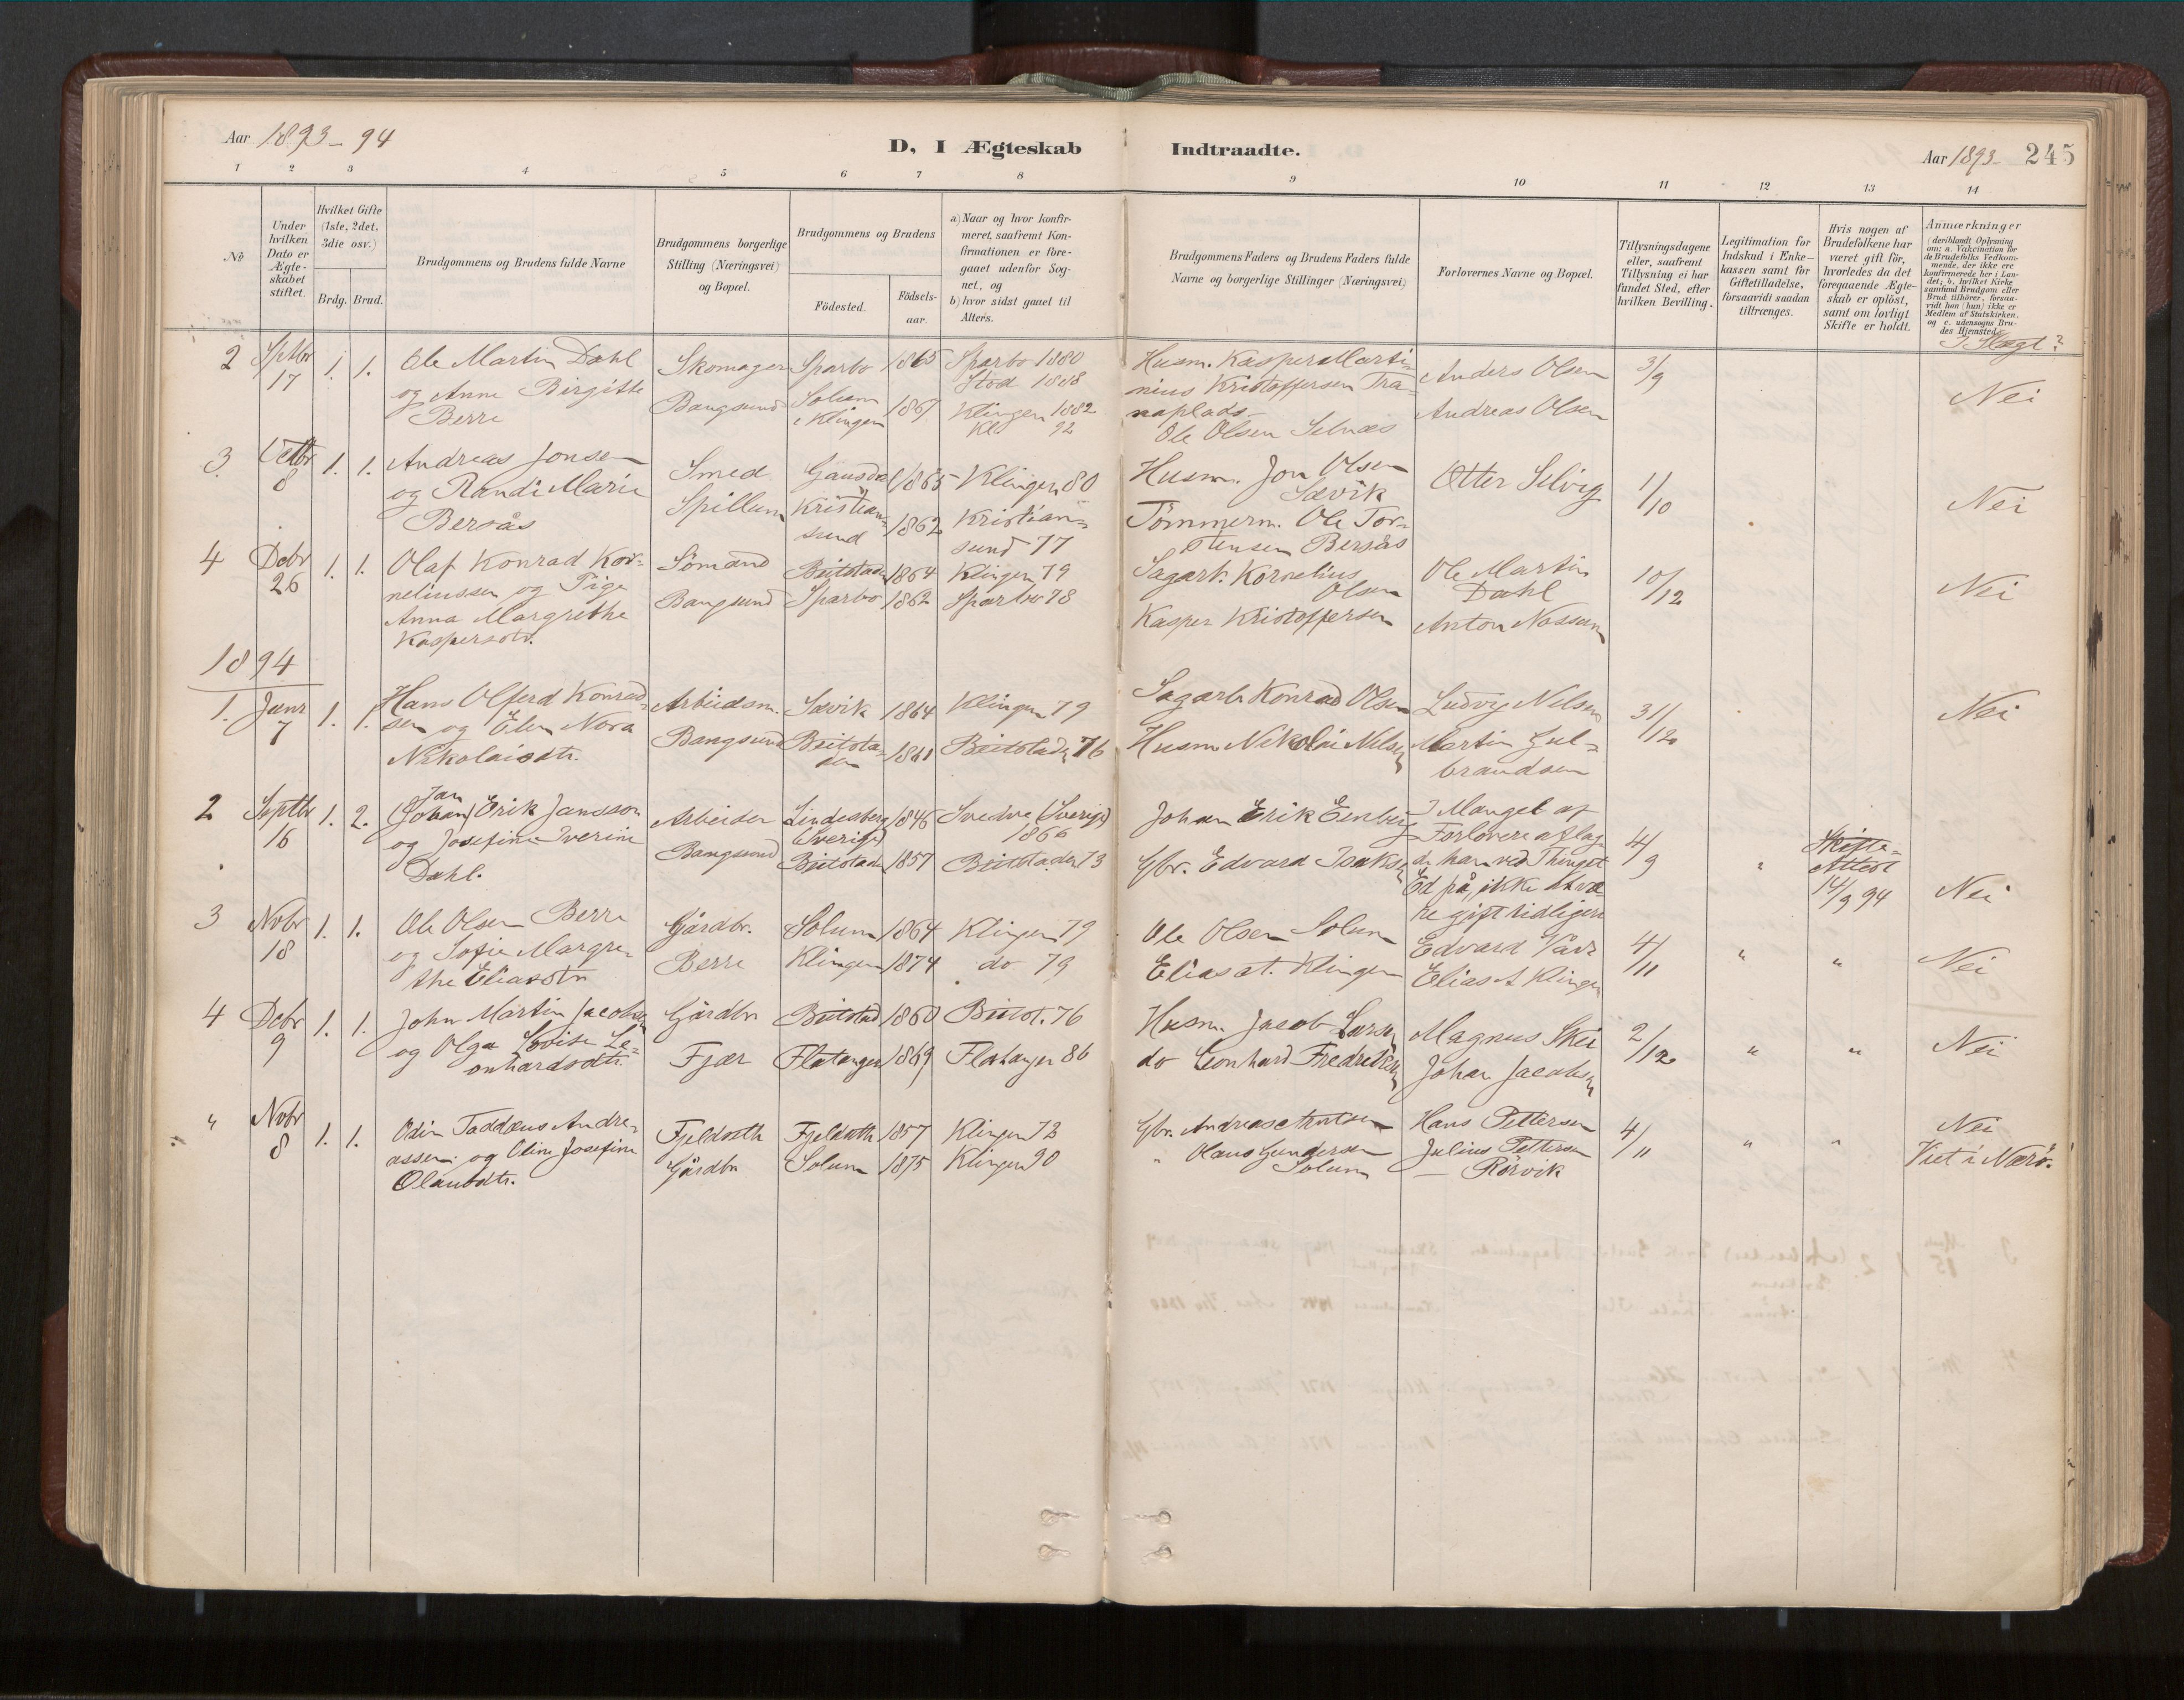 Aar 1893 - 94
D, I Ægteskab
Indtraadte.
Aar 1893 245
1 2 3 4 5 6 7 8 9 10 11 12 13 14
No
Under hvilken Dato er Ægteskabet stiftet.
Hvilket Gifte (1ste, 2det, 3die osv.)
Brdg. Brud.
Brudgommens og Brudens fulde Navne
Brudgommens borgerlige Stilling (Næringsvei) og Bopæl.
Brudgommens og Brudens
Födested.
Födsels-aar.
a) Naar og hvor konfirmeret, saafremt Konfirmationen er foregaaet udenfor Sognet, og
b) hvor sidst gaaet til Alters.
Brudgommens Faders og Brudens Faders fulde Navne og borgerlige Stillinger (Næringsvei)
Forlovernes Navne og Bopæl.
Tillysningsdagene eller, saafremt Tillysning ei har fundet Sted, efter hvilken Bevilling.
Legitimation for Indskud i Enkekassen samt for Giftetilladelse, forsaavidt saadan tiltrænges.
Hvis nogen af Brudefolkene har været gift för, hvorledes da det foregaaende Ægteskab er oplöst, samt om lovligt Skifte er holdt.
Anmærkninger (deriblandt Oplysning om: a. Vakcination for de Brudefolks Vedkommende, der ikke ere konfirmerede her i Landet; b. hvilket Kirkesamfund Brudgom eller Brud tilhörer, forsaavidt han (hun) ikke er Medlem af Statskirken. og c. udensogns Brudes Hjemsted.
I Slægt?
2 Septbr 17 1. 1. Ole Martin Dahl
og Anne Birgitte
Berre
Skomager
Bangsund
Sparbo 1865
Solum i Klingen 1867
Sparbo 1880
Stod 1888
Klingen 1882
Kl 92
Husm. Kasper Marti-
nius Kristoffersen Tra-
naplads
Ole Olsen Selnæs
Anders Olsen
Andreas Olsen
3/9
Nei
3. Octbr 8 1. 1. Andreas Jonsen
og Randi Marie
Bersås
Smed
Spillum
Gausdal 1865
Kristian-
sund 1862
Klingen 80
Kristian-
sund 77
Husm. Jon Olsen
Sævik
Tömmerm. Ole Tor-
stensen Bersås
Otter Selvig
1/10
Nei
4 Debr 26 1. 1. Olaf Konrad Kor-
neliussen og Pige
Anna Margrethe
Kaspersdtr.
Sömand
Bangsund
Beitstaden 1864
Sparbo 1862
Klingen 79
Sparbo 78
Sagarb. Kornelius
Olsen
Kasper Kristoffersen
Ole Martin
Dahl
Anton Nossum
10/12
Nei
1894
1. Janr 7 1. 1. Hans Olferd Konrad-
sen og Elen Nora
Nikolaisdtr.
Arbeidsm.
Bangsund
Sævik 1864
Beitsta-
den 1861
Klingen 79
Beitstaden 76
Sagarb Konrad Olsen
Husm. Nikolai Nilsen
Ludvig Nilsen
Martin Gul-
brandsen
31/12
Nei
2 Septbr 16 1. 2. Jan
(Johan) Erik Jansson
og Josefine Iverine
Dahl.
Arbeider
Bangsund
Lindesberg 1846
(Sverige)
Beitstaden 1857
Svedve (Sverige)
1866
Beitstaden 73
Johan Erik Eenberg
Gbr. Edvard Isaksen
I Mangel af
Forlovere aflag-
de han ved Thinget
Ed på, ikke at væ-
re gift tidligere
4/9
"
Skifte-
Attest
14/9 94
Nei
3 Novbr 18 1. 1. Ole Olsen Berre
og Sofie Margre-
the Eliasdtr
Gårdbr.
Berre
Solum 1864
Klingen 1874
Klingen 79
do 79
Ole Olsen Solum
Elias At. Klingen
Edvard Vår
Elias A Klingen
4/11
" "
Nei
4 Debr 9 1. 1. John Martin Jacobsen
og Olga Lovise Le-
onhardsdtr.
Gårdbr
Fjær
Beitstad 1860
Flatanger 1869
Beitst. 76
Flatanger 86
Husm. Jacob Larsen
do Leonhard Fredriksen
Magnus Skei
Johan Jacobsen
2/12
" "
Nei
" Novbr 8 1. 1. Odin Taddæus Andre-
assen og Oline Josefine
Olausdtr.
Fjeldseth
Gårdbr
Fjeldseth 1857
Solum 1875
Klingen 72
Klingen 90
Gbr. Andreas
" Olaus Gundersen
Solum
Hans Pettersen
Julius Pettersen
— Rörvik
4/11
" "
Nei
Viet i Nærö.